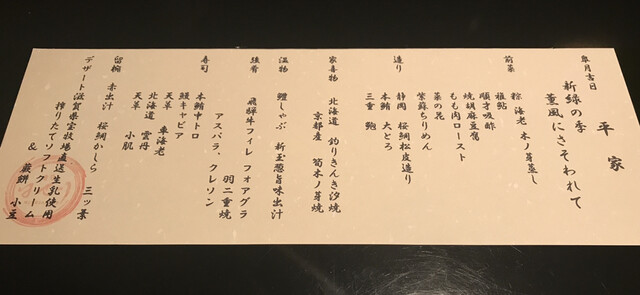 皐月吉日
平家
新緑の季
薫風にさそわれて
前菜
粽 海老 木ノ芽蒸し
稚鮎
順才吸酢
焼胡麻豆腐
もも肉ロースト
菜の花
紫蘇ちりめん
造り
静岡 桜鯛松皮造り
本鮪 大とろ
三重 鮑
家喜物
北海道 釣りきんき汐焼
京都産 筍木ノ芽焼
温物
鱧しゃぶ 新玉葱旨味出汁
強肴
飛騨牛フィレ フォアグラ 羽二重焼
アスパラ、クレソン
寿司
本鮪中トロ
鰻キャビア
天草 車海老
北海道 雲丹
天草 小肌
留椀
赤出汁 桜鯛かしら 三ッ葉
デザート
滋賀県宝牧場直送生乳使用
搾りたてソフトクリーム
& 蕨餅 小豆